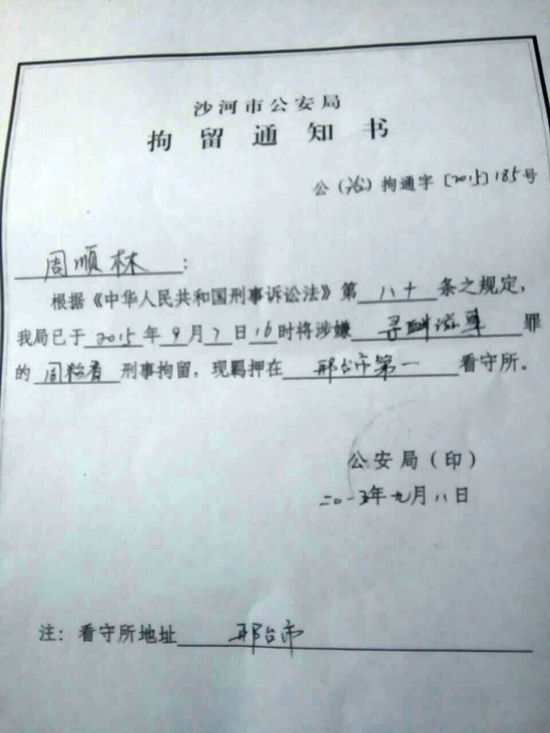 沙河市公安局
拘留通知书
公（治）拘通字〔2015〕185号
周顺林：
根据《中华人民共和国刑事诉讼法》第八十条之规定，
我局已于2015年9月7日16时将涉嫌寻衅滋事罪
的周 香刑事拘留，现羁押在邢台市第一看守所。
公安局（印）
二〇一五年九月八日
注：看守所地址邢台市